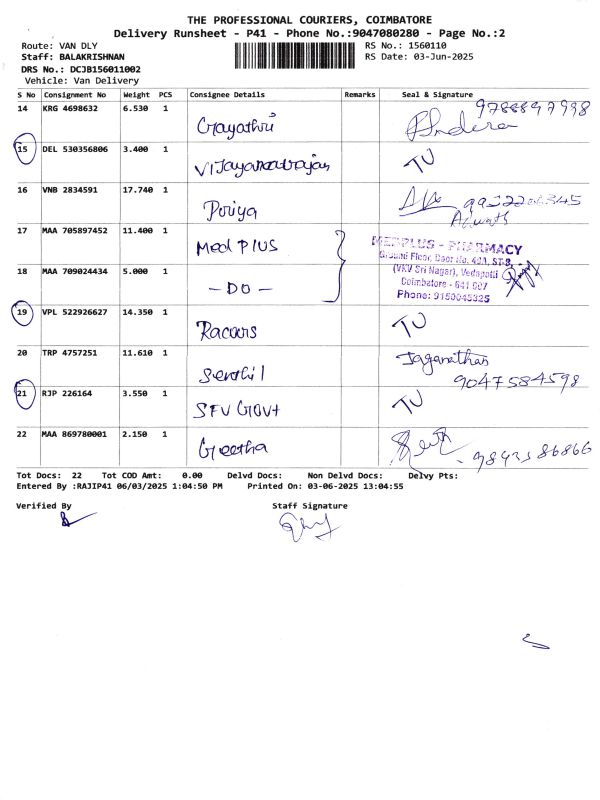 THE PROFESSIONAL COURIERS, COIMBATORE
Delivery Runsheet - P41 - Phone No.:9047080280 - Page No.:2
Route: VAN DLY RS No.: 1560110
Staff: BALAKRISHNAN RS Date: 03-Jun-2025
DRS No.: DCJB156011002
Vehicle: Van Delivery
S No Consignment No Weight PCS Consignee Details Remarks Seal & Signature
14 KRG 4698632 6.530 1 Gayathri
15 DEL 530356806 3.400 1 TU
16 VNB 2834591 17.740 1 Poriya
17 MAA 705897452 11.400 1 Med PlUS MEDPLUS - PHARMACY
Ground Floor, Door No. 40A, ST-B,
(VKV Sri Nagar), Vedapatti
18 MAA 709024434 5.000 1 - DO - Coimbatore - 641 007
Phone: 9150045325
19 VPL 522926627 14.350 1 Racours TU
20 TRP 4757251 11.610 1 Senthil Jaganathan
9047584598
21 RJP 226164 3.550 1 TU
22 MAA 869780001 2.150 1 Geetha
Tot Docs: 22 Tot COD Amt: 0.00 Delvd Docs: Non Delvd Docs: Delvy Pts:
Entered By :RAJIP41 06/03/2025 1:04:50 PM Printed On: 03-06-2025 13:04:55
Verified By Staff Signature